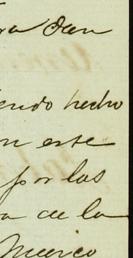 ra dan
endo hecho
n este
por las
a de la
Mexico